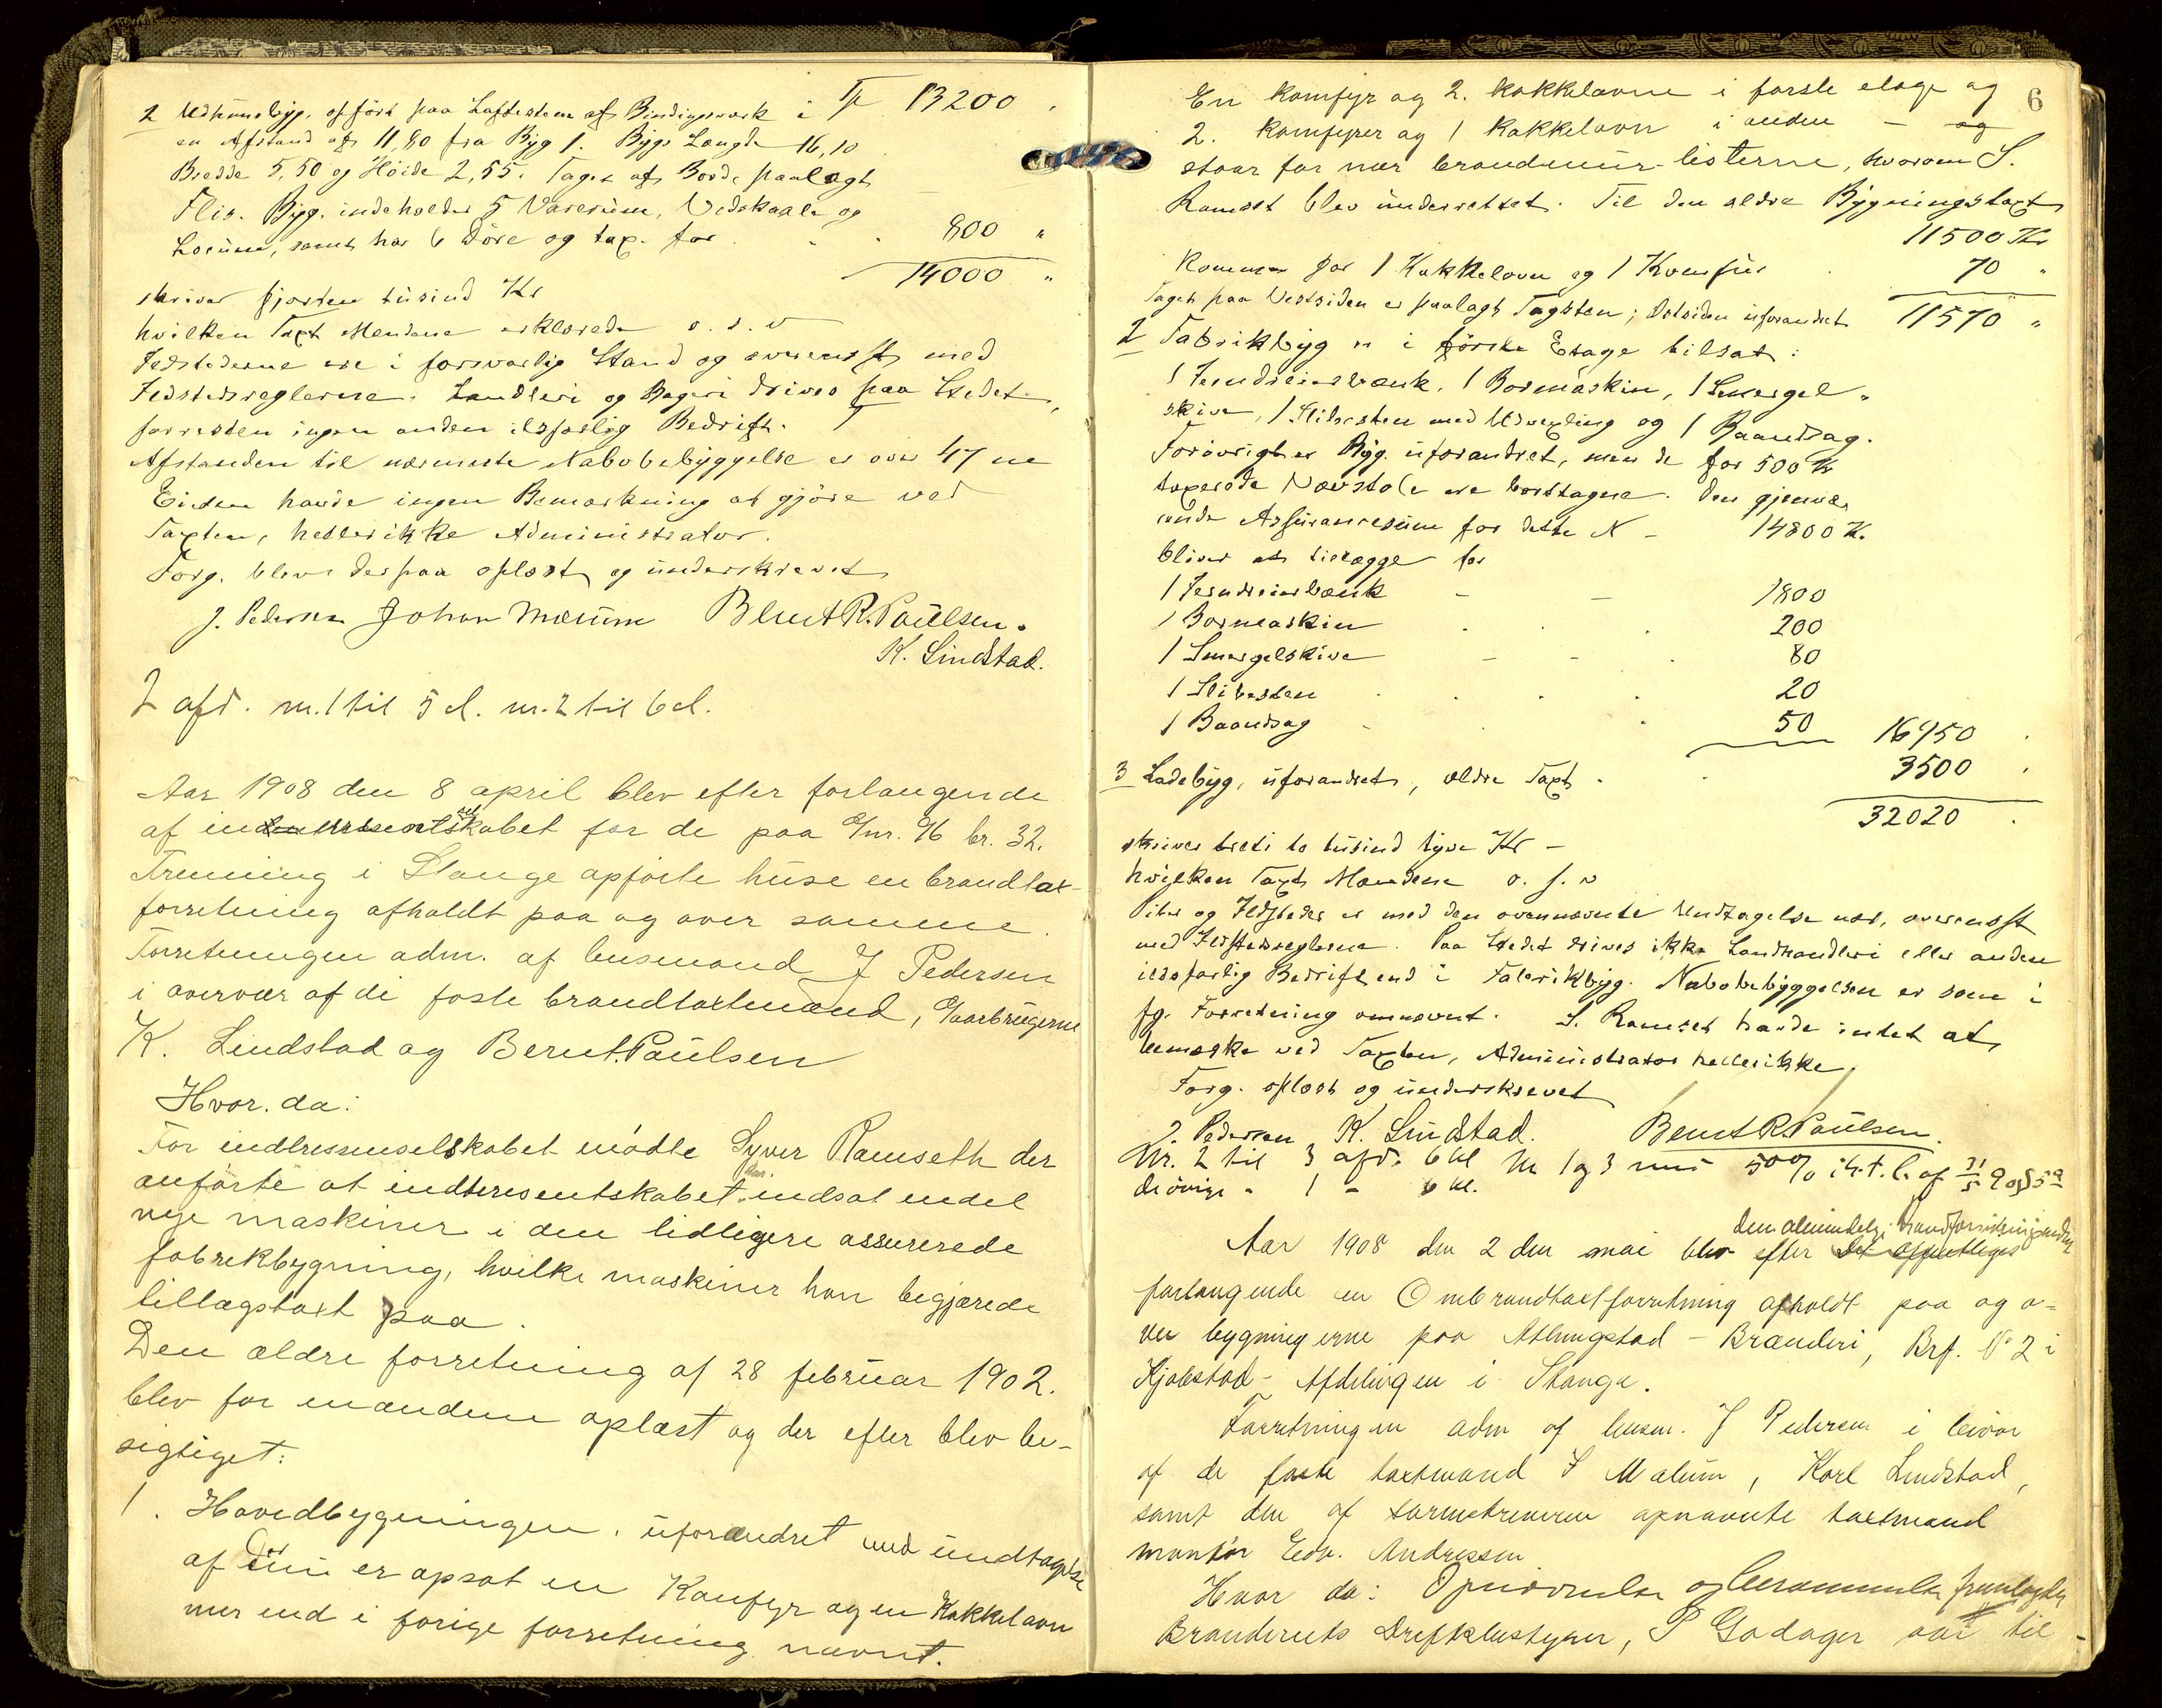 Tp 13200.
2 Udhusbyg. opført paa Laftesten af Bindingsværk i
en Afstand af 11,80 fra Byg 1. Bygs Længde 16,10
Bredde 5,50 og Høide 2,55. Taget af Bord, paalagt
Flis. Byg. indeholder 5 Varerum, Vedskaale og
Locum, samt har 6 Døre og tax. for . . 800 "
14000 "
skriver fjorten tusind Kr
hvilken Taxt Mændene erklærede o. s. v
Ildstederne ere i forsvarlig Stand og overensst. med
Ildstedsreglerne. Handleri og Bageri drives paa Stedet,
forresten ingen anden ildsfarlig Bedrift.
Afstanden til nærmeste Nabobebyggelse er over 47 m
Eieren havde ingen Bemærkning at gjøre ved
Taxten, heller ikke Administrator.
Forg. blev derpaa oplæst og underskrevet
J. Pedersen Johan Mælum Bernt R. Paulsen.
K. Lindstad.
2 afd. nr. 1 til 5 cl. nr. 2 til 6 cl.
Aar 1908 den 8 april blev efter forlangende
af skabet for de paa Gnr. 96 br. 32.
i Stange opførte huse en brandtax-
forretning afholdt paa og over samme.
Forretningen adm. af lensmand J Pedersen
i overvær af de faste brandtaxtmænd, Gaarbrugerne
K. Lindstad og Bernt Paulsen
Hvor da:
For indtressenselskabet mødte Syver Ramseth der
anførte at indteresentskabet indsat endel
nye maskiner i den tidligere assurerede
fabrekbygning, hvilke maskiner han begjærede
tillægstaxt paa.
Den ældre forretning af 28 februar 1902.
blev for mændene oplæst og der efter blev be-
sigtiget:
1. Hovedbygningen. uforandret med undtagelse
af er opsat en Komfyr og en Kakkelavn
mer end i forige forretning nævnt.
6
En komfyr og 2. kakkelavne i første etage og
2. komfyrer og 1 kakkelovn i anden — og
staar for nær brandmur-listerne, hvorom S.
Ramset blev underrettet. Til den ældre Bygningstaxt
11500 Kr
Kommer for 1 Kakkelovn og 1 Komfur 70 "
Taget paa Vestsiden er paalagt Tagsten; Østsiden uforandret 11570 "
2 Fabrikbyg er i første Etage tilsat:
1 Jerndreierbænk, 1 Bormaskin, 1 Smergel-
skive, 1 Slibesten med Udvexling og 1 Baandsag.
Forøvrigt er Byg. uforandret, men de for 500 Kr
taxerede Vævstole ere borttagne. Den gjenvæ-
rende Assurancesum for dette N - 14800 K.
bliver at tillægge for
1 Jerndreierbænk - - 1800
1 Bormaskin . . . 200
1 Smergelskive - - . 80
1 Slibesten . . . 20
1 Baandsag . . 50 16950 .
3 Ladebyg, uforandret, ældre Taxt . . 3500 .
32020 .
skriver treti to tusind tyve Kr -
hvilken Taxt Mændene o. s. v
Piber og Ildsteder er med den ovennævnte Undtagelse nær, overensst
med Ildstedsreglerne. Paa Stedet drives ikke Landhandleri eller anden
ildsfarlig Bedrift end i Fabrikbyg. Nabobebyggelsen er som i
fg. Forretning omnævnt. S. Ramset havde intet at
bemærke ved Taxten, Administrator heller ikke.
Forg. oplæst og underskrevet
J. Pedersen K. Lindstad. Bernt R. Paulsen.
Nr. 2 til 3 afd. 6 kl Nr 1 og 3 50% af
de øvrige - 1 - 6 kl.
den almindelige
Aar 1908 den 2 den mai blev efter det offentliges
forlangende en Ombrandtaxtforretning afholdt paa og o=
ver bygningerne paa Atlungstad - Brænderi, Brf. No 2 i
Kjøbstad-Afdelingen i Stange.
Forretningen adm af lensm. J Pedersen i
af de faste taxtmænd J Mælum, Karl Lindstad,
samt den af opnævnte taxtmand
montør Edv. Andressen
Hvor da: fremlagdes
Brænderiets , P Godager til